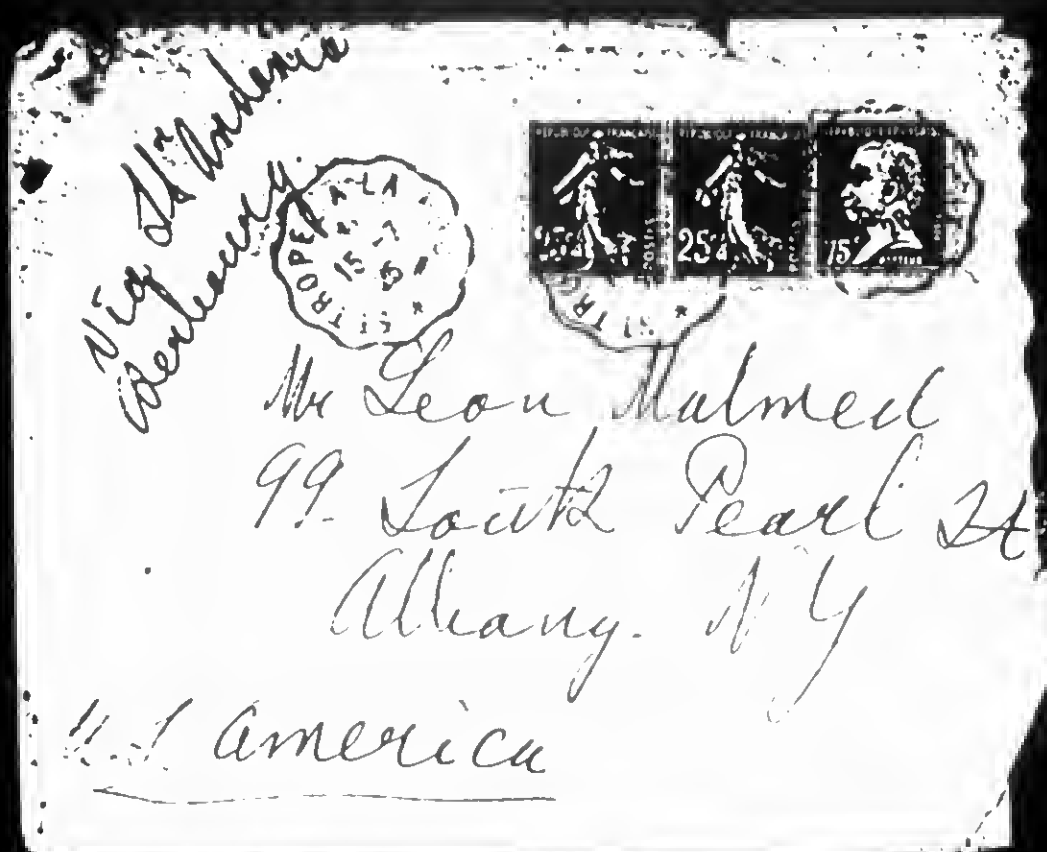 Via Str Andania
Cherbourg.
ST TROPEZ A LA
15 - 7
REPUBLIQUE FRANÇAISE
25c
POSTES
REPUBLIQUE FRANÇAISE
25c
POSTES
REPUBLIQUE FRANÇAISE
75c
PASTEUR
ST TRO
Mr Leon Malmed
99. South Pearl St
Albany. N Y
U.S America